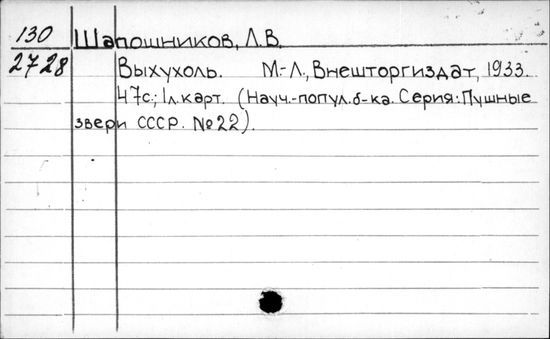 130 Шапошников, Л.В.
2728 Выхухоль. М.-Л., Внешторгиздат, 1933.
47с.; 1л.карт. (Науч.-попул.б-ка. Серия: Пушные
звери СССР. №22).